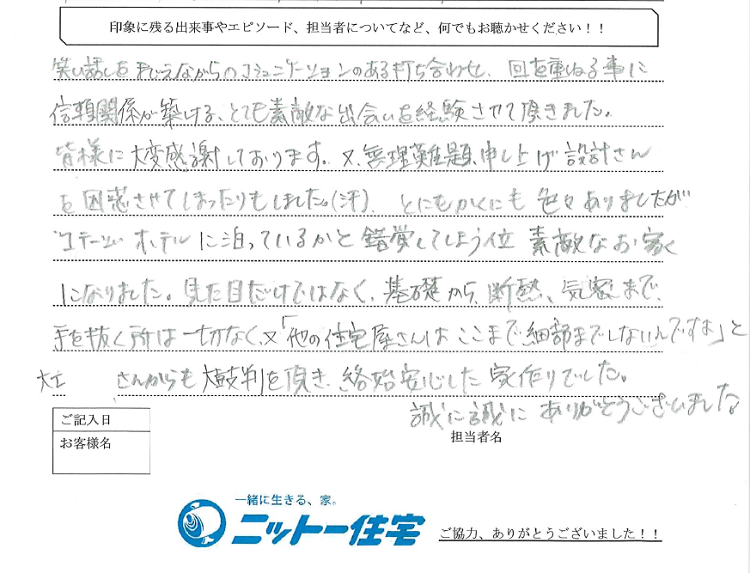 印象に残る出来事やエピソード、担当者についてなど、何でもお聴かせください!!
笑い話しをまじえながらのコミュニケーションのある打ち合わせ、回を重ねる事に
信頼関係が築ける、とても素敵な出会いを経験させて頂きました。
皆様に大変感謝しております。又、無理難題申し上げ設計さん
を困惑させてしまったりもしました。(汗)、とにもかくにも色々ありましたが
リゾートホテルに泊っているかと錯覚してしまう位 素敵なお家
になりました。見た目だけではなく、基礎から、断熱、気密まで、
手を抜く所は一切なく、又「他の住宅屋さんはここまで細部までしないんですよ」と
大工 さんからも太鼓判を頂き、終始安心した家作りでした。
誠に誠にありがとうございました
ご記入日
お客様名
担当者名
一緒に生きる、家。
ニットー住宅
ご協力、ありがとうございました!!